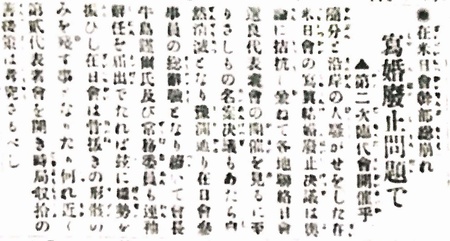 ●在米日會幹部總崩れ
寫婚廢止問題で
▲第二次臨代會開催乎
隨分と沿岸の人騒がせをした在
米日會の寫眞結婚廢止決議は
論に拮抗し兼ねて各地聯絡日會
選良代表會の開催を見るに至
りさしもの名案決議もあたら
然消滅となり豫聞通り在日會參
事員の總辭職となり續いて會長
牛島謹爾氏及び常務委員も連袂
辭任を申出でたれば玆に
扱ひし在日會は骨拔きの形骸の
みを殘す事となりたり何れ近く
第貳代表者會を開き時局收拾の
善後策は講究さるべし